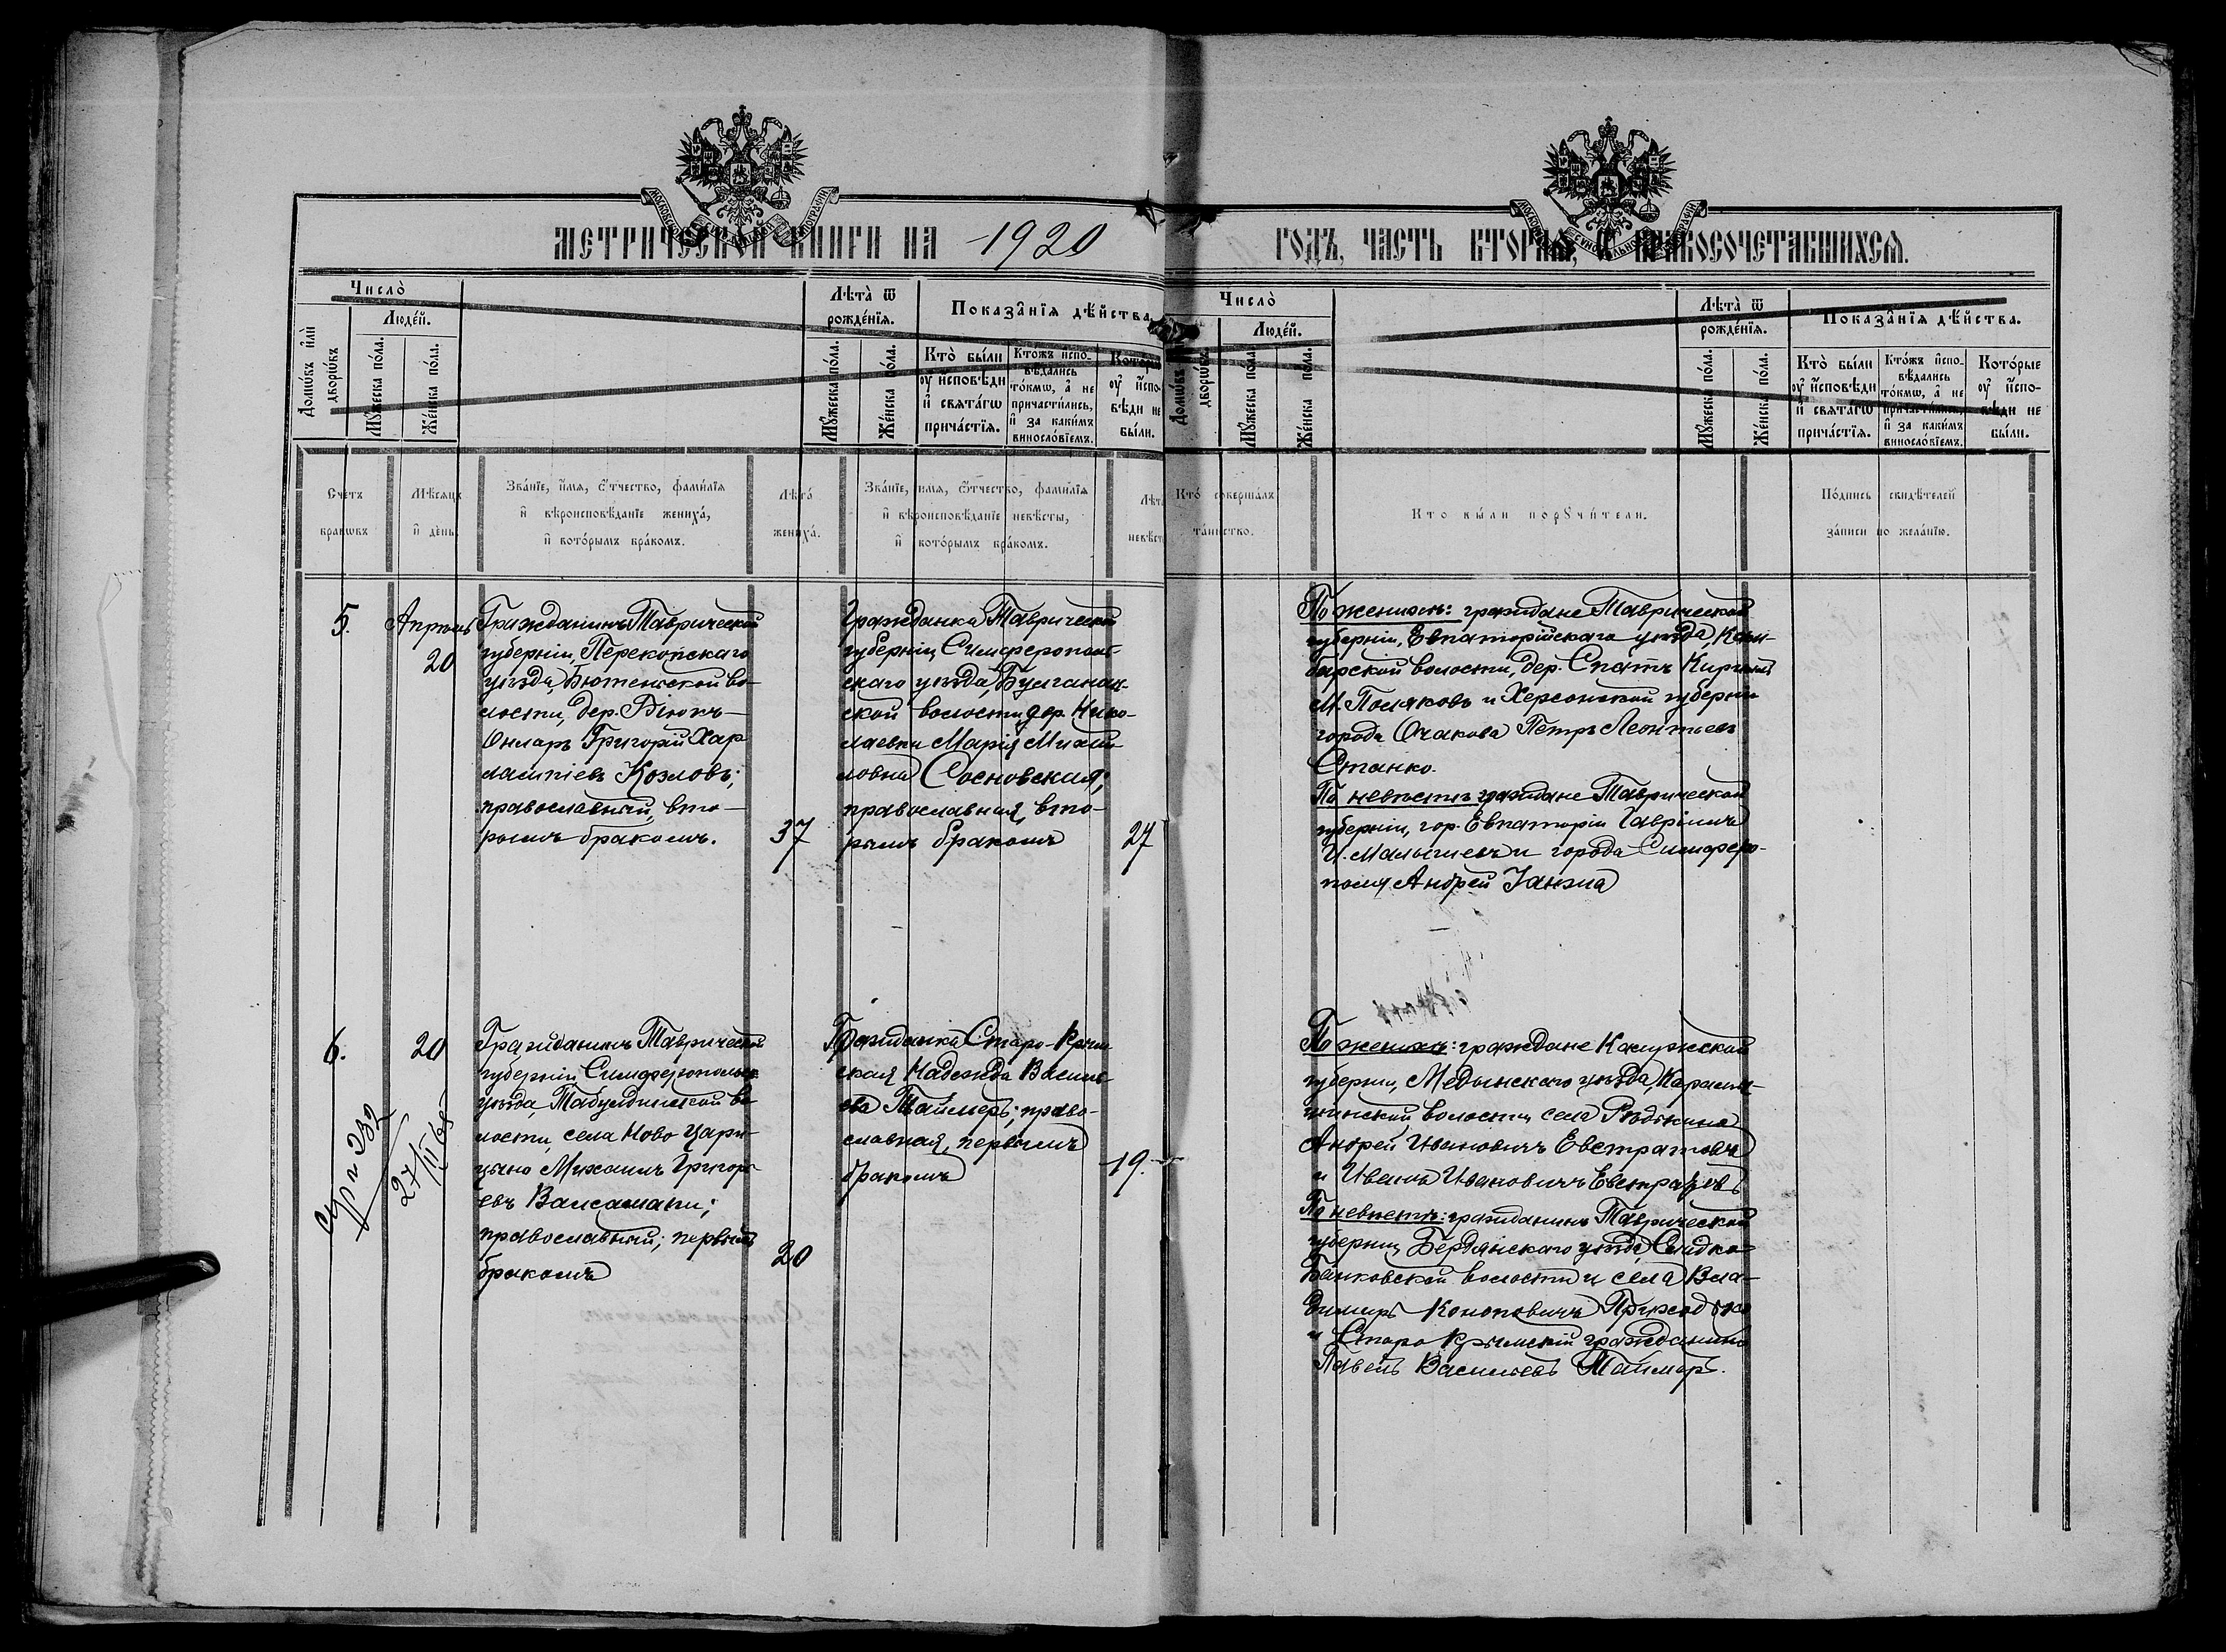 МЕТРИЧЕСКОЙ КНИГИ НА 1920
ГОДЪ, ЧАСТЬ ВТОРАЯ, О БРАКОСОЧЕТАВШИХСЯ.
Число̀
Людей.
Домѡвъ и҆лѝ дворѡвъ
Мꙋжеска по́ла.
Же́нска по́ла.
Лѣта̀ ѿ рожде́нїѧ.
Мꙋжеска по́ла.
Же́нска по́ла.
Показа̂нїѧ дѣ́йства.
Кто̀ бы́ли оу҆ и҆сповѣди и҆ свѧта́гѡ прича́стїѧ.
Кто́жъ и҆спо-
вѣдались
то́кмѡ, а҆ не
причасти́лись,
и҆ за каки́мъ
винослόвїемъ.
Кото́рые
оу҆ и҆спо-
вѣди не
бы́ли.
Число̀
Людей.
Домѡвъ и҆лѝ дворѡвъ
Мꙋжеска по́ла.
Же́нска по́ла.
Лѣта̀ ѿ рожде́нїѧ.
Мꙋжеска по́ла.
Же́нска по́ла.
Показа̂нїѧ дѣ́йства.
Кто̀ бы́ли
оу҆ и҆сповѣди
и҆ свѧта́гѡ
прича́стїѧ.
Кто́жъ и҆спо-
вѣдались
то́кмѡ, а҆ не
причасти́лись,
и҆ за каки́мъ
винослόвїемъ.
Кото́рые
оу҆ и҆спо-
вѣди не
бы́ли.
Счетъ
браковъ
Мѣсяцъ
и҆ день.
Зва́нїе, и҆мя, ѻ҆тчество, фами́лїя
и҆ вѣроисповѣданїе жениха̀,
и҆ кото́рымъ бра́комъ.
Лѣта̀
жениха̀.
Зва́нїе, имя, ѻ҆тчество, фами́лїя
и҆ вѣроисповѣданїе невѣсты,
и҆ кото́рымъ бра́комъ.
Лѣта
невѣсты
Кто̀ совершалъ
таинство.
Кто бы́ли порꙋчи́тели.
По́дпись свидѣтелей
за́писи по жела́нїю.
5.
Апрѣль
20
Гражданинъ Таврической
губерніи, Перекопскаго
уѣзда, Бютеньской во-
лости, дер. Біюкъ-
Онларъ Григорій Хар
лампіевъ Козловъ;
православный, вто-
рымъ бракомъ.
37
Гражданка Таврической
губерніи, Симферополь-
скаго уѣзда, Булганак-
ской волости, дер. Нико-
лаевки Марія Михай-
ловна Сосновская;
православная, вто-
рымъ бракомъ
27
По женихѣ: граждане Таврической
губерніи, Евпаторійскаго уѣзда,
волости, дер. Спатъ
М. Поляковъ и Херсонской губерніи
города Очакова Петръ Леонтьевъ
Станко.
По невѣстѣ граждане Таврической
губерніи, гор. Евпаторіи Гавріилъ
И. Малышевъ и города Симферо-
поля Андрей
6.
20
232
27/III 65
Гражданинъ Таврической
губерніи, Симферопольск
уѣзда, Табулдинской во
лости, села Ново Цари-
цыно Михаилъ Григорь-
евъ Валсамаки;
православный; первымъ
бракомъ
20
Гражданка Старо-Крым
ская Надежда Василь-
ева Таймеръ; право-
славная, первымъ
бракомъ
19.
По женихѣ: граждане Калужской
губерніи, Медынскаго уѣзда,
волости, села
Андрей Ивановичъ Евстратовъ
и Иванъ Ивановичъ Евстратовъ
По невѣстѣ: гражданинъ Таврической
губерніи, Бердянскаго уѣзда,
волости и села Вла-
димиръ Кононовичъ Приходько
и Старо Крымскій гражданинъ
Павелъ Васильевъ Таймеръ.